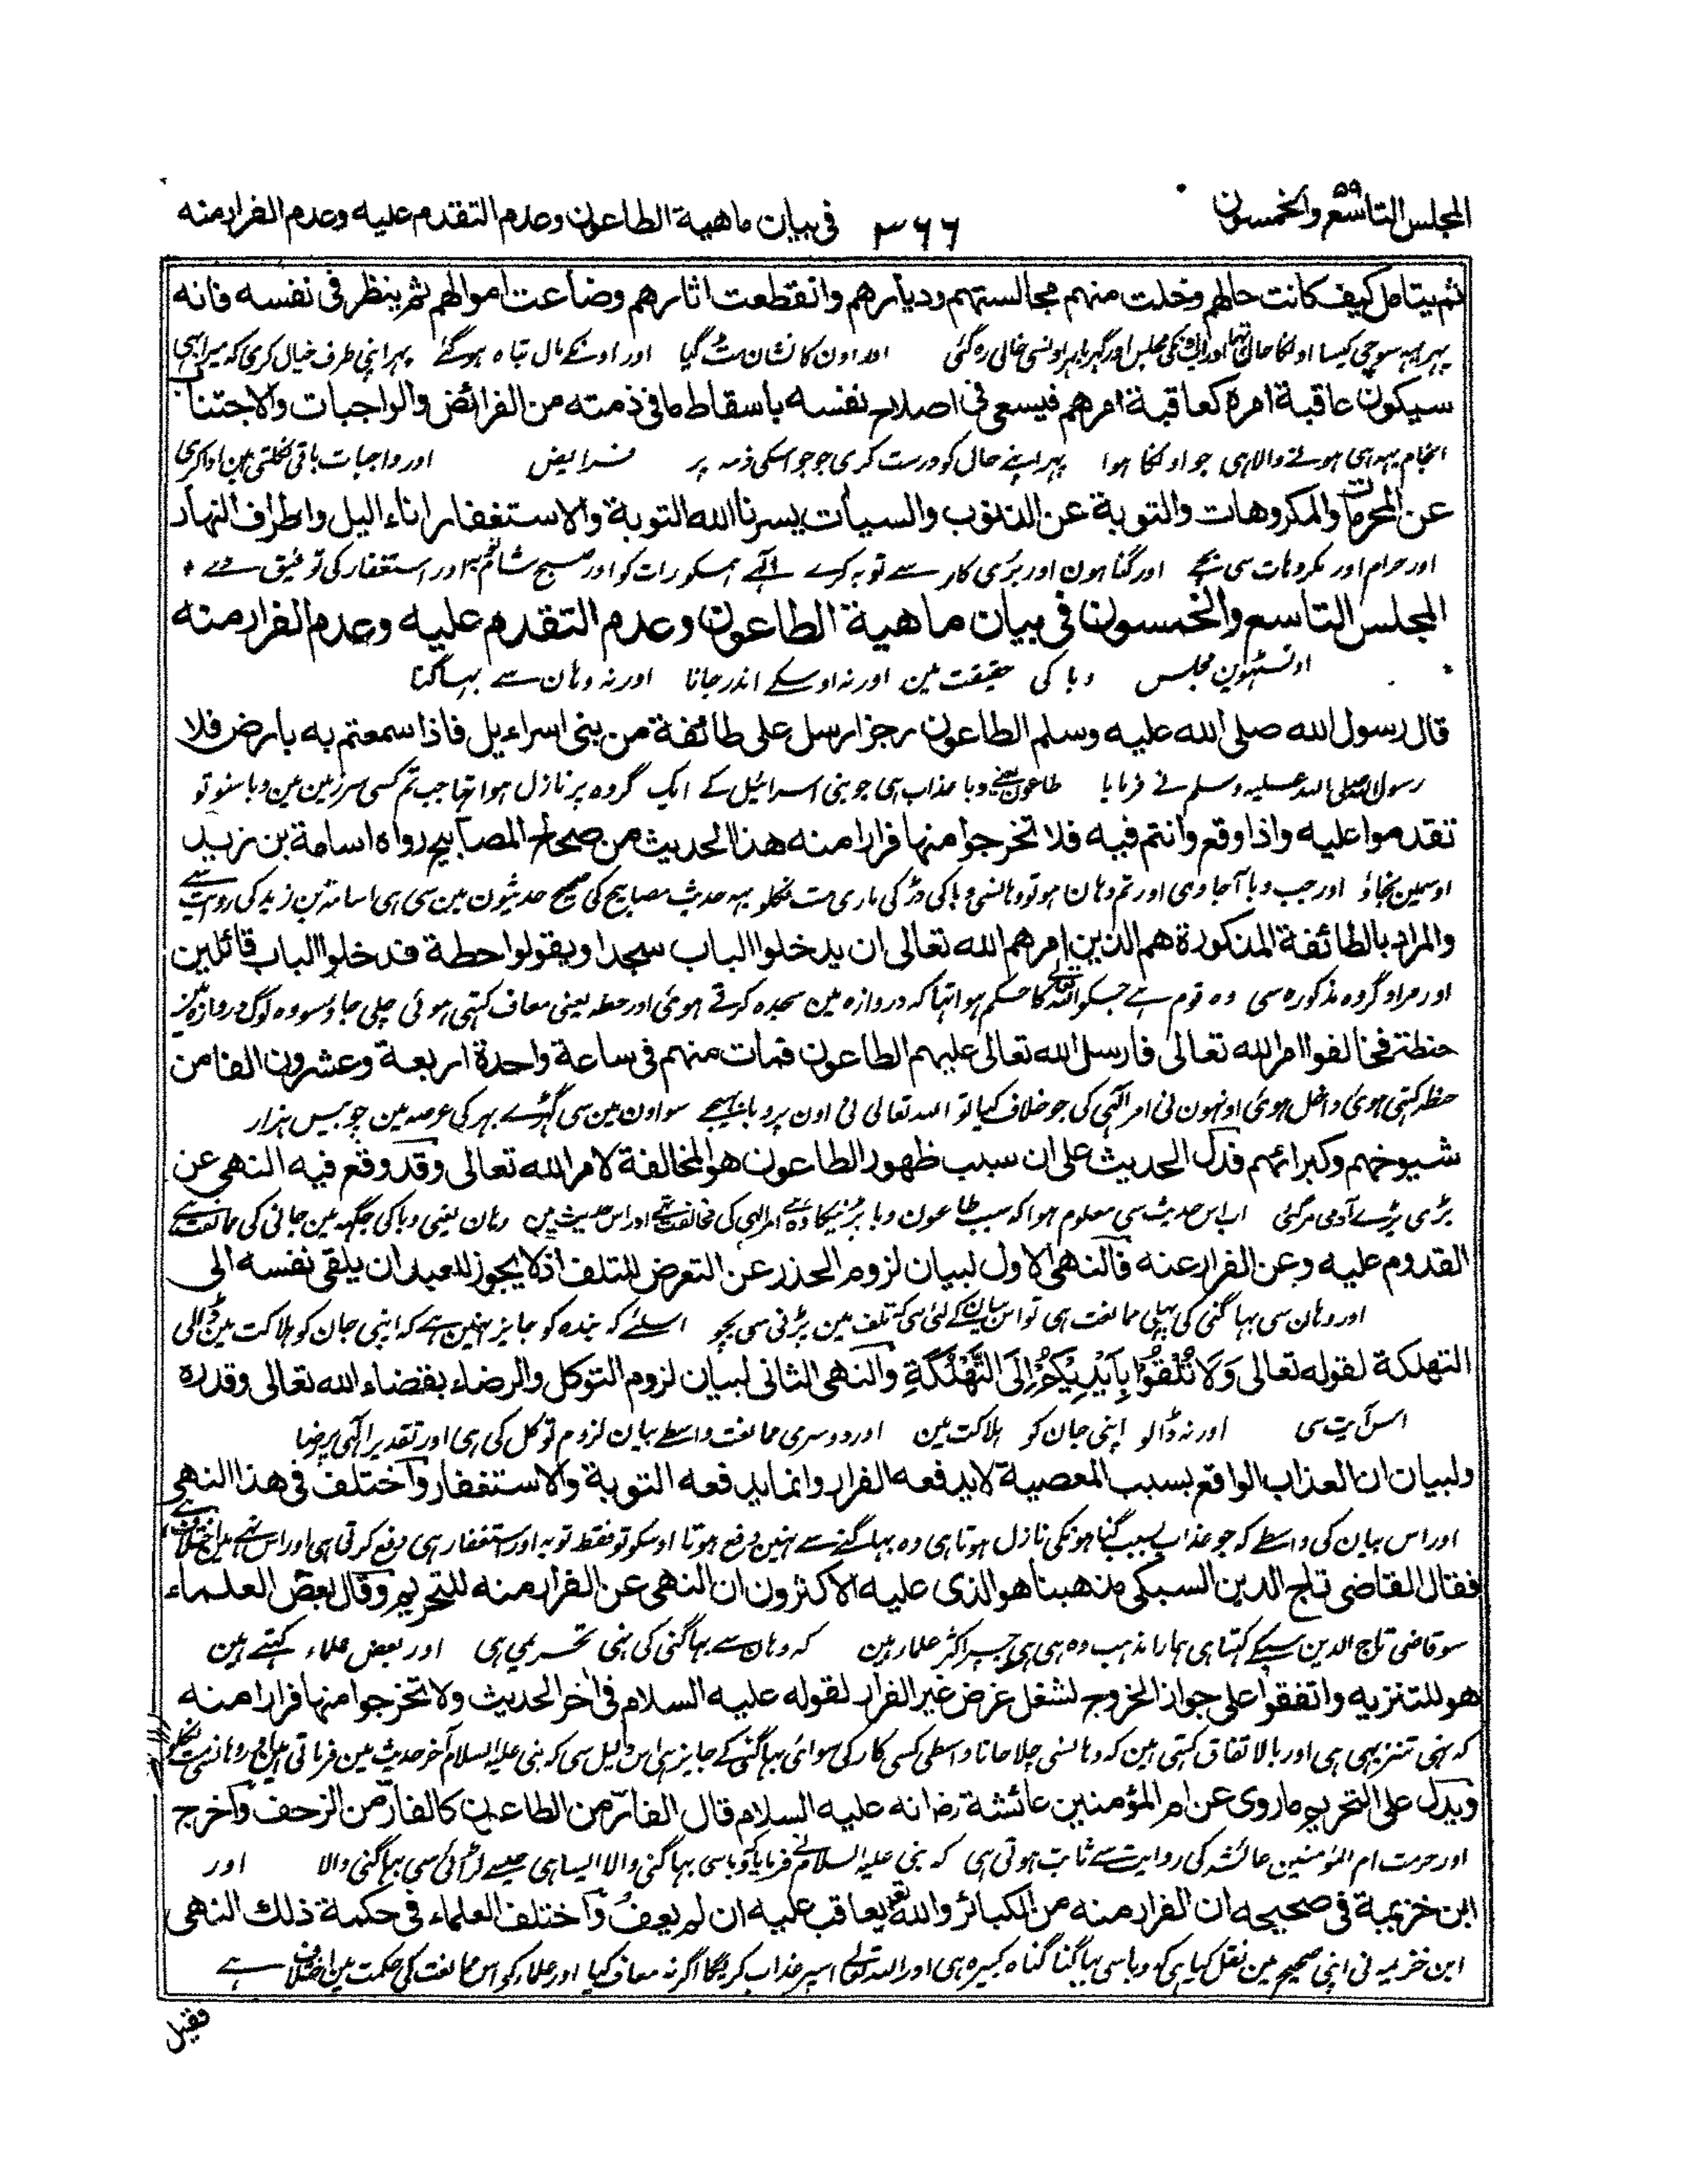 المجلس التاسع والخمسون ۵۹
۳۶۶
فی بیان ماهیة الطاعون وعدم التقدم علیه وعدم الفرار منه
ثم یتامل کیف کانت حالهم وخلت منهم مجالستهم ودیارهم وانقطعت اثارهم وضاعت اموالهم ثم ینظر فی نفسه فانه
پهر یہہ سوچی کیسا اونکا حال تہا اور اونکی مجلس اور گہر بار اونسی خالی رہ گئی اور اون کا نشان مٹ گیا اور اونکے مال تباہ ہو گئے پہر اپنی طرف خیال کری کہ میرا بہی
سیکون عاقبة امره کعاقبة امرهم فیسعی فی اصلاح نفسه باسقاط ما فی ذمته من الفرائض والواجبات والاجتناب
انجام یہہ ہی ہونے والا ہی جو اونکا ہوا پہر اپنے حال کو درست کری جو جو اسکی ذمہ پر فرایض اور واجبات باقی نکلتی ہین ادا کری
عن المحرمات والمکروهات والتوبة عن الذنوب والسیأت یسرنا الله التوبة والاستغفار اناء الیل واطراف النهار
اور حرام اور مکروہات سی بچے اور گناہون اور بری کار سے توبہ کرے الٰہی ہمکو رات کو اور صبح شام توبہ اور استغفار کی توفیق دے ٭
المجلس التاسع والخمسون فی بیان ماهیة الطاعون وعدم التقدم علیه وعدم الفرار منه
اونسٹہوین مجلس وبا کی حقیقت مین اور نہ اوسکے اندر جانا اور نہ وہان سے بہاگنا
قال رسول الله صلی الله علیه وسلم الطاعون رجز ارسل علی طائفة من بنی اسراءیل فاذا سمعتم به بارض فلا
رسول اللہ صلی اللہ علیہ وسلم نے فرمایا طاعون یعنے وبا عذاب ہی جو بنی اسرائیل کے ایک گروہ پر نازل ہوا تہا جب تم کسی سرزمین مین وبا سنو تو
تقدموا علیه واذا وقع وانتم فیه فلا تخرجوا منها فرارا منه هذا الحدیث من صحاح المصابیح رواه اسامة بن زید
اوسمین نجاؤ اور جب وبا آجاوی اور تم وہان ہو تو وہانسی وبا کی ڈر کی ماری مت نکلو یہہ حدیث مصابیح کی صحیح حدیثون مین سی ہی اسامہ بن زید کی روایت سے
والمراد بالطائفة المذکورة هم الذین امرهم الله تعالی ان یدخلوا الباب سجدا ویقولوا حطة فدخلوا الباب قائلین
اور مراد گروہ مذکورہ سی وہ قوم ہے جسکو اللہ تعالے کا حکم ہوا تہا کہ دروازہ مین سجدہ کرتے ہوئی اور حطہ یعنی معاف کہتی ہوئی چلی جاؤ سو وہ لوگ دروازہ مین
حنطة فخالفوا امر الله تعالی فارسل الله تعالی علیهم الطاعون فمات منهم فی ساعة واحدة اربعة وعشرون الفا من
حنطہ کہتی ہوئی داخل ہوئی اونہون نی امر الٰہی کی جو خلاف کیا تو اللہ تعالی نی اون پر وبا بہیجے سو اون مین سی گہڑے بہر کی عرصہ مین چوبیس ہزار
شیوخهم وکبرائهم فدل الحدیث علی ان سبب ظهور الطاعون هو المخالفة لامر الله تعالی وقد وقع فیه النهی عن
بڑی بڑے آدمی مر گئی اب اس حدیث سی معلوم ہوا کہ سبب طاعون وبا پڑنیکا وہ ہے امر الٰہی کی مخالفت ہے اور اس حدیث مین وہان یعنی وبا کی جگہہ مین جانی کی ممانعت ہے
القدوم علیه وعن الفرار عنه فالنهی الاول لبیان لزوم الحذر عن التعرض للتلف اذ لا یجوز للعبد ان یلقی نفسه الی
اور وہان سی بہاگنی کی پہلی ممانعت ہی تو اس بیان کے لئی ہی کہ تلف مین پڑنی سی بچو اسلئے کہ بندہ کو جایز نہین ہے کہ اپنی جان کو ہلاکت مین ڈالی
التهلکة لقوله تعالی وَلَا تُلْقُوْا بِاَیْدِیْکُمْ اِلَی التَّهْلُکَةِ والنهی الثانی لبیان لزوم التوکل والرضاء بقضاء الله تعالی وقدره
اس آیت سی اور نہ ڈالو اپنی جان کو ہلاکت مین اور دوسری ممانعت واسطے بیان لزوم توکل کی ہی اور تقدیر الٰہی پر رضا
ولبیان ان العذاب الواقع بسبب المعصیة لا یدفعه الفرار وانما یدفعه التوبة والاستغفار واختلف فی هذا النهی
اور اس بیان کی واسطے کہ جو عذاب بسبب گناہونکی نازل ہوتا ہی وہ بہاگنے سے نہین دفع ہوتا اوسکو تو فقط توبہ اور استغفار ہی دفع کرتی ہی اور اس نہے مین اختلاف ہے
فقال القاضی تاج الدین السبکی مذهبنا هو الذی علیه الاکثرون ان النهی عن الفرار منه للتحریم وقال بعض العلماء
سو قاضی تاج الدین سبکے کہتا ہی ہمارا مذہب وہ ہی ہی جسپر اکثر علما ہین کہ وہان سے بہاگنی کی نہی تحریمی ہی اور بعض علماء کہتے ہین
هو للتنزیه واتفقوا علی جواز الخروج لشغل غرض غیر الفرار لقوله علیه السلام فی اٰخر الحدیث ولا تخرجوا منها فرارا منه
کہ نہی تنزیہی ہی اور بالاتفاق کہتی ہین کہ وہانسی چلا جانا واسطی کسی کار کی سوائی بہاگنی کے جایز ہی اس دلیل سی کہ نبی علیہ السلام آخر حدیث مین فرماتی ہین اور وہانسی مت نکلو
ویدل علی التحریم ما روی عن ام المؤمنین عائشة رض انه علیه السلام قال الفارّ من الطاعون کالفارّ من الزحف واخرج
اور حرمت ام المؤمنین عائشہ کی روایت سے ثابت ہوتی ہی کہ نبی علیہ السلام نے فرمایا کہ وبا سی بہاگنی والا ایسا ہی جیسے لڑائی سی بہاگنی والا اور
ابن خزیمة فی صحیحه ان الفرار منه من الکبائر والله تع یعاقب علیه ان لم یعف واختلف العلماء فی حکمة ذلک النهی
ابن خزیمہ نی اپنی صحیح مین نقل کیا ہی کہ وبا سی بہاگنا گناہ کبیرہ ہی اور اللہ تعالے اسپر عذاب کریگا اگر نہ معاف کیا اور علماء کو اس ممانعت کی حکمت مین اختلاف ہے
فقیل